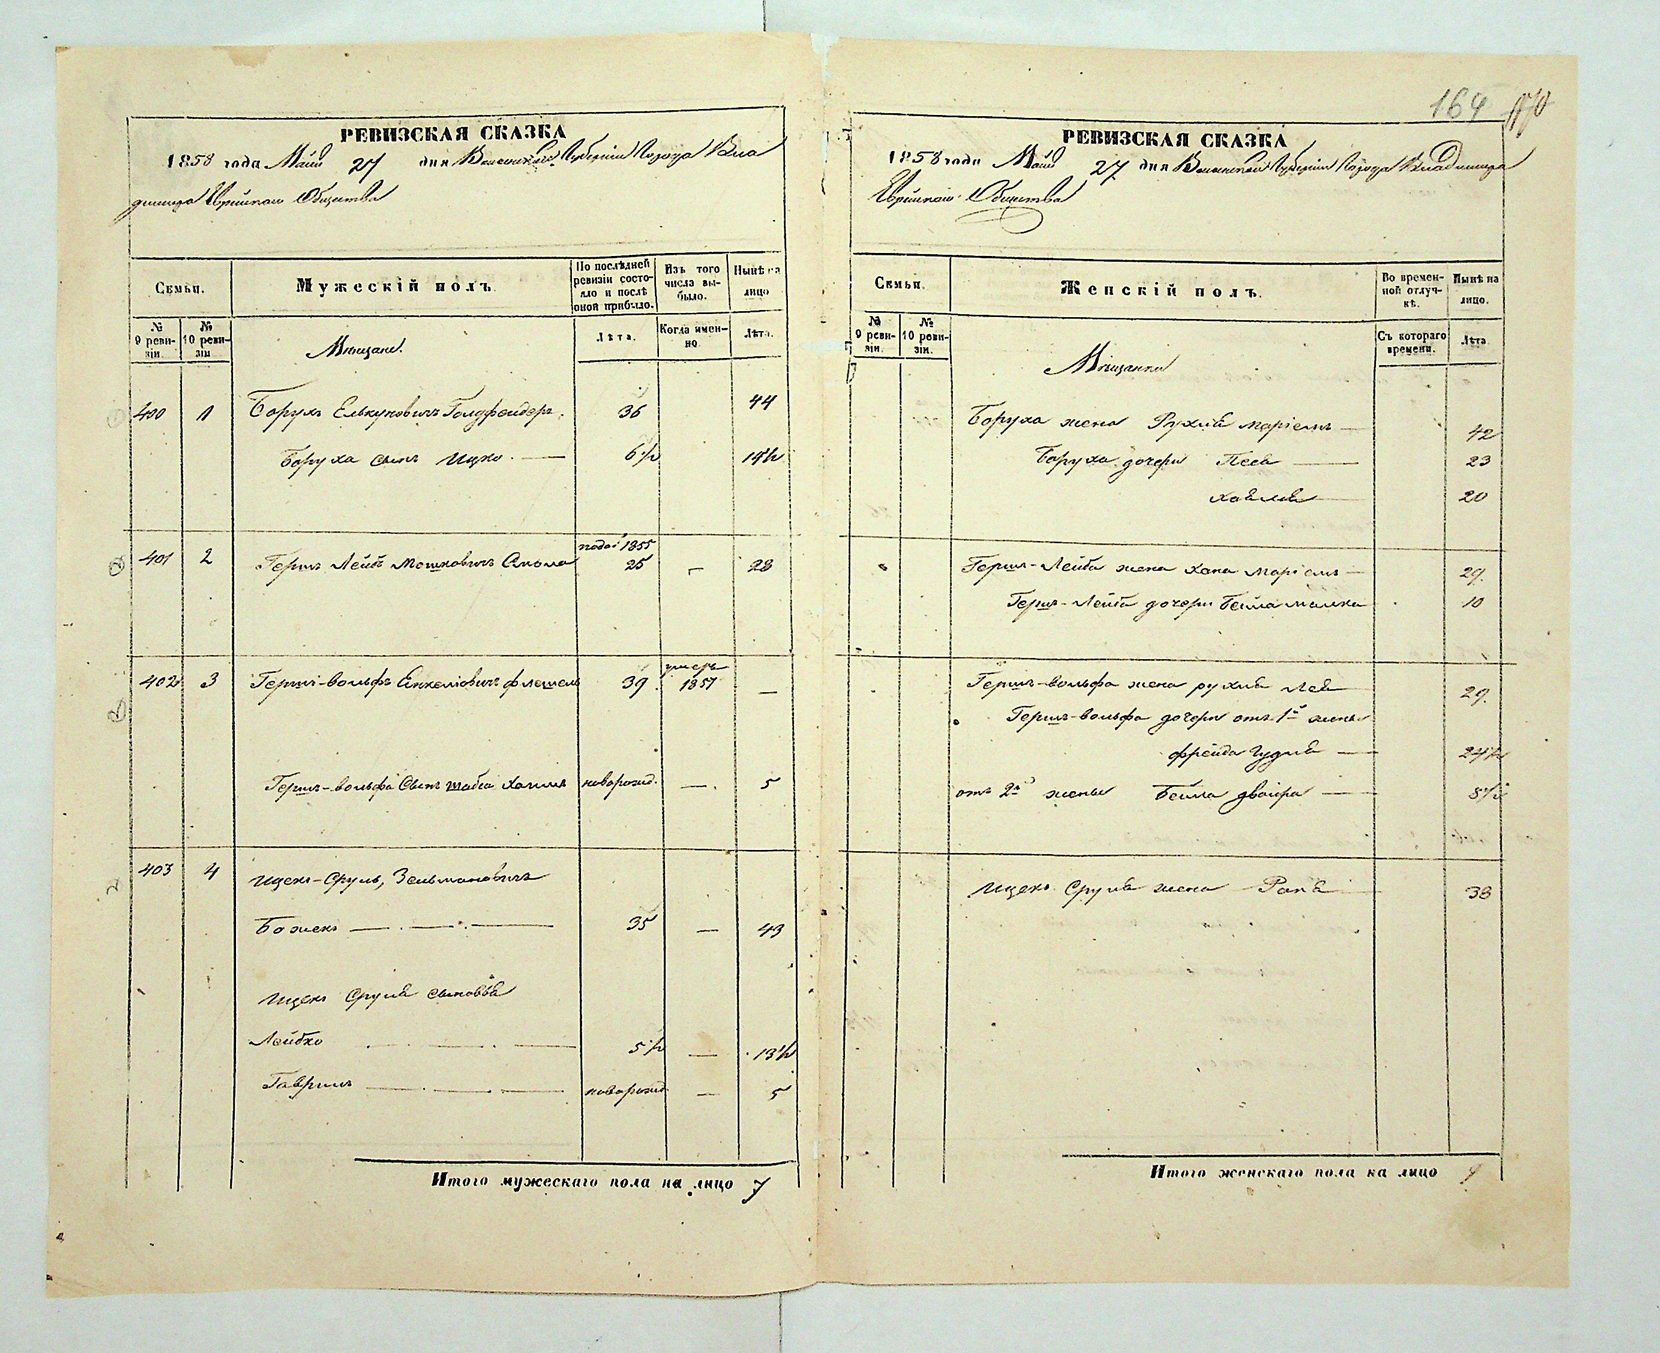 164 170
РЕВИЗСКАЯ СКАЗКА
1858 года Маія 27 дня Волынской Губерніи Города Вла
димира Еврейскаго Общества
Семьи.
Мужескій полъ.
По послѣдней ревизіи состояло и послѣ оной прибыло.
Изъ того числа выбыло.
Нынѣ на лицо
№ 9 ревизіи.
№ 10 ревизіи
Мѣщане.
Лѣта.
Когда именно.
Лѣта.
400 1 Борухъ Елькуновичъ Голдфейдеръ. 36 44
Боруха сынъ Ицко. — 6½ 14½
401 2 Гершъ Лейбъ Мошковичъ 25 — 28
1855
402 3 Гершъ-Вольфъ Янкелювичъ Флешель 39 умеръ 1857 —
Гершъ-Вольфа сынъ Шабса Хаимъ новорожд. — 5
403 4 Ицекъ-Сруль, Зельмановичъ
Божекъ — 35 — 43
Ицекъ Сруля сыновья
Лейбко 5½ — 13½
Гаврилъ — новорожд — 5
Итого мужескаго пола на лицо 7
РЕВИЗСКАЯ СКАЗКА
1858 года Маія 27 дня Волынской Губерніи Города Владимира
Еврейскаго Общества
Семьи.
Женскій полъ.
Во временной отлучкѣ.
Нынѣ на лицо.
№ 9 ревизіи.
№ 10 ревизіи.
Мѣщанки
Съ котораго времени.
Лѣта
Боруха жена Рухля Маріемъ — 42
Боруха дочери Песя — 23
Хавлея — 20
Гершъ-Лейба жена Хана Маріемъ — 29.
Гершъ-Лейба дочери Бейла Малка 10
Гершъ-Вольфа жена Рухля Лея 29.
Гершъ-Вольфа дочери отъ 1й жены
Фрейда Гудля — 24½
отъ 2й жены Бейла Двойра — 8½
Ицекъ Сруля жена 38
Итого женскаго пола на лицо 9